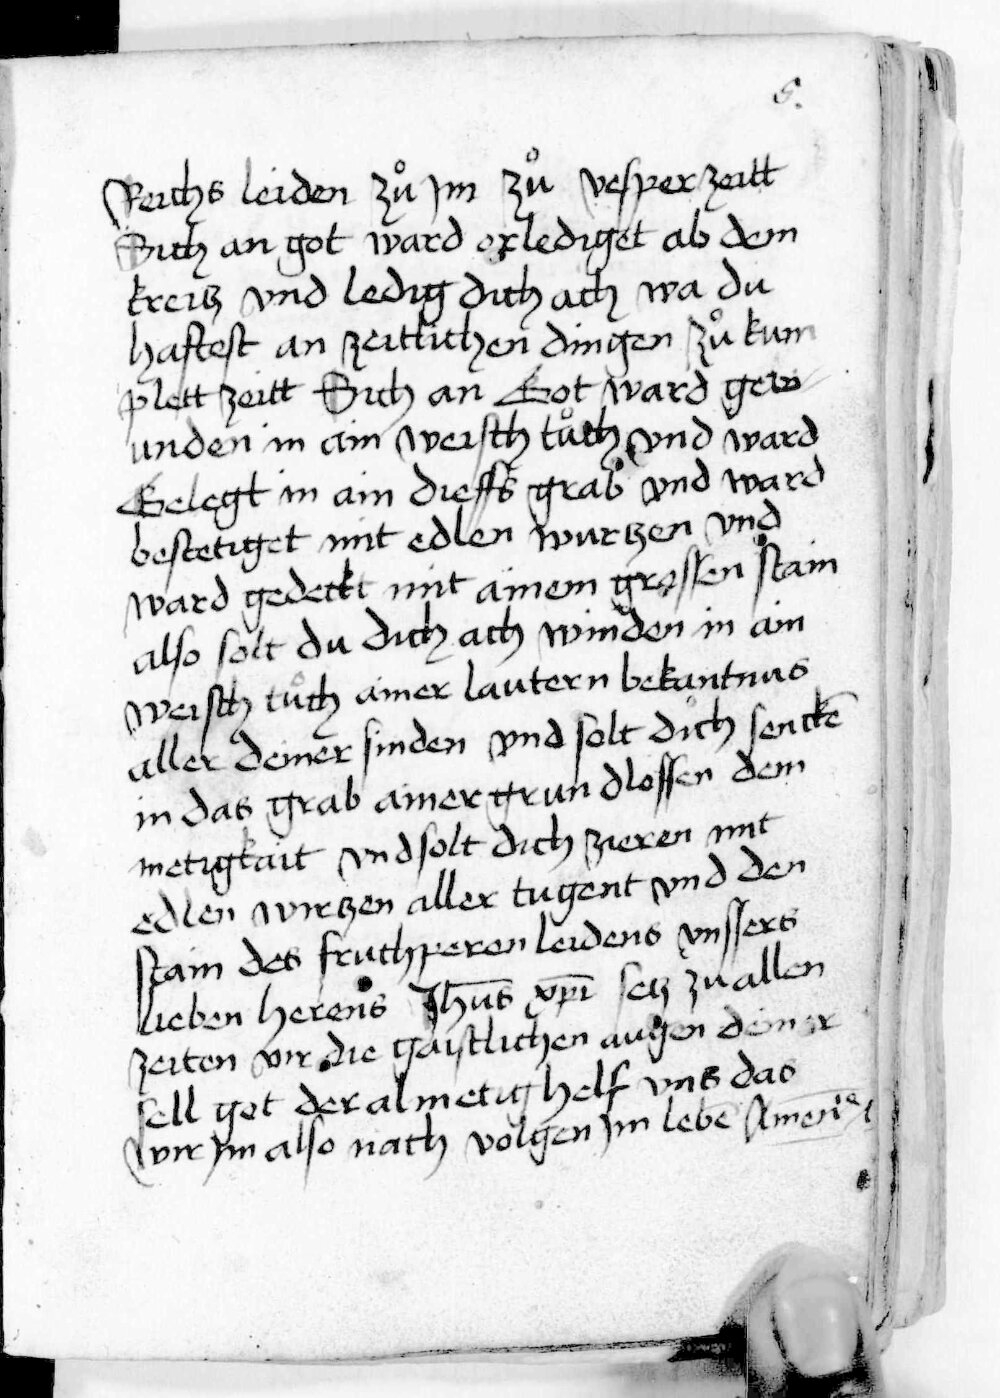 6.
Reichs leiden zů jm zů vesper zeitt
Sich an got ward erlediget ab dem
kreitz vnd ledig dich ach wa du
haftest an zeittlichen dingen zů kum
plett zeitt Sich an Got ward gew
unden in ain weisch tůch vnd ward
Gelegt in ain dieffs grab vnd ward
bestetiget mit edlen wurtzen vnd
ward gedeckt mit ainem grossen stain
also solt du dich ach winden in ain
weisch tůch ainer lautern bekantnus
aller deiner sinden vnd solt dich senckē
in das grab ainer grundlossen dem
metigkait vnd solt dich zieren mit
edlen wirtzen aller tugent vnd den
stain des fruchperen leidens vnssers
lieben herens Jhūs xp̄i setz zu allen
zeiten vir die gaistlichen augen deiner
sell got der almetig helf vns das
wir jm also nach volgen jm lebē Amen